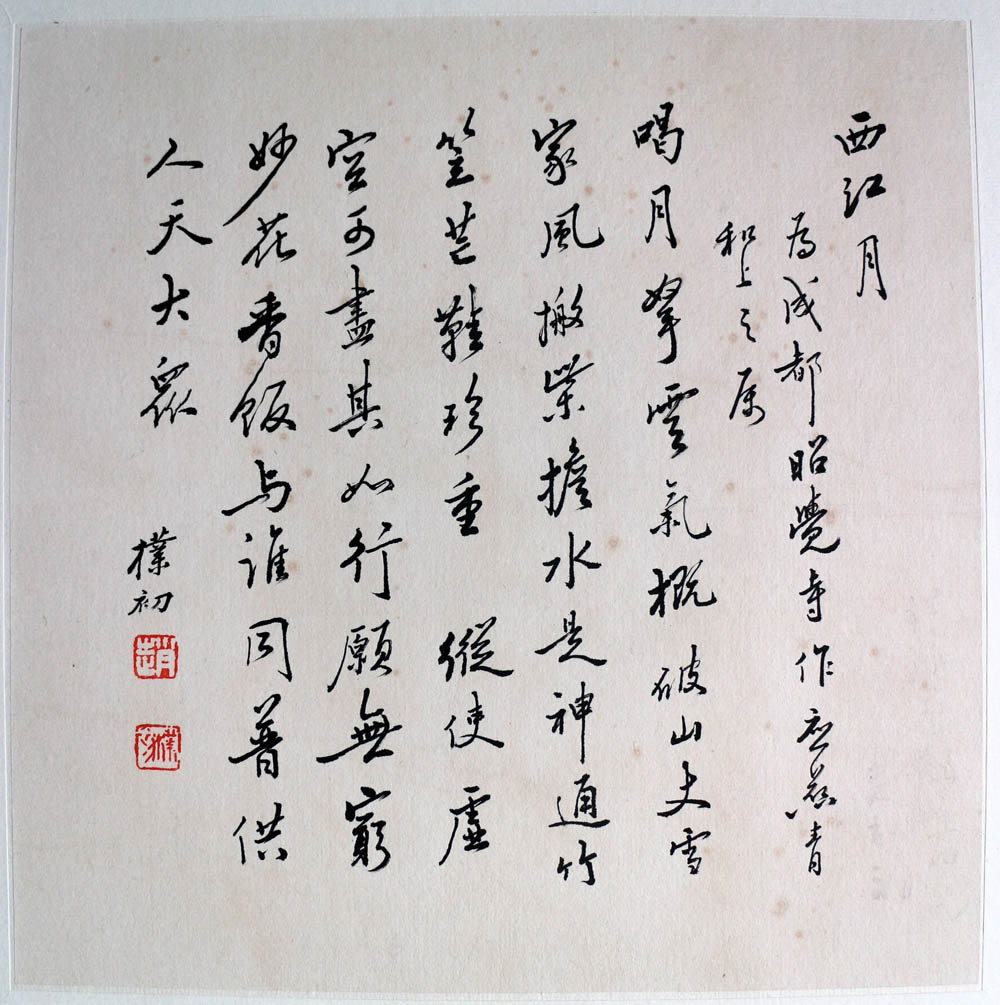 西江月
為成都昭覺寺作應慈青
和上之屬
喝月拏雲氣概破山丈雪
家風搬柴擔水是神通竹
笠芒鞋珍重 縱使虛
空可盡其如行願無窮
妙花香飯与誰同普供
人天大眾
樸初
趙
樸初